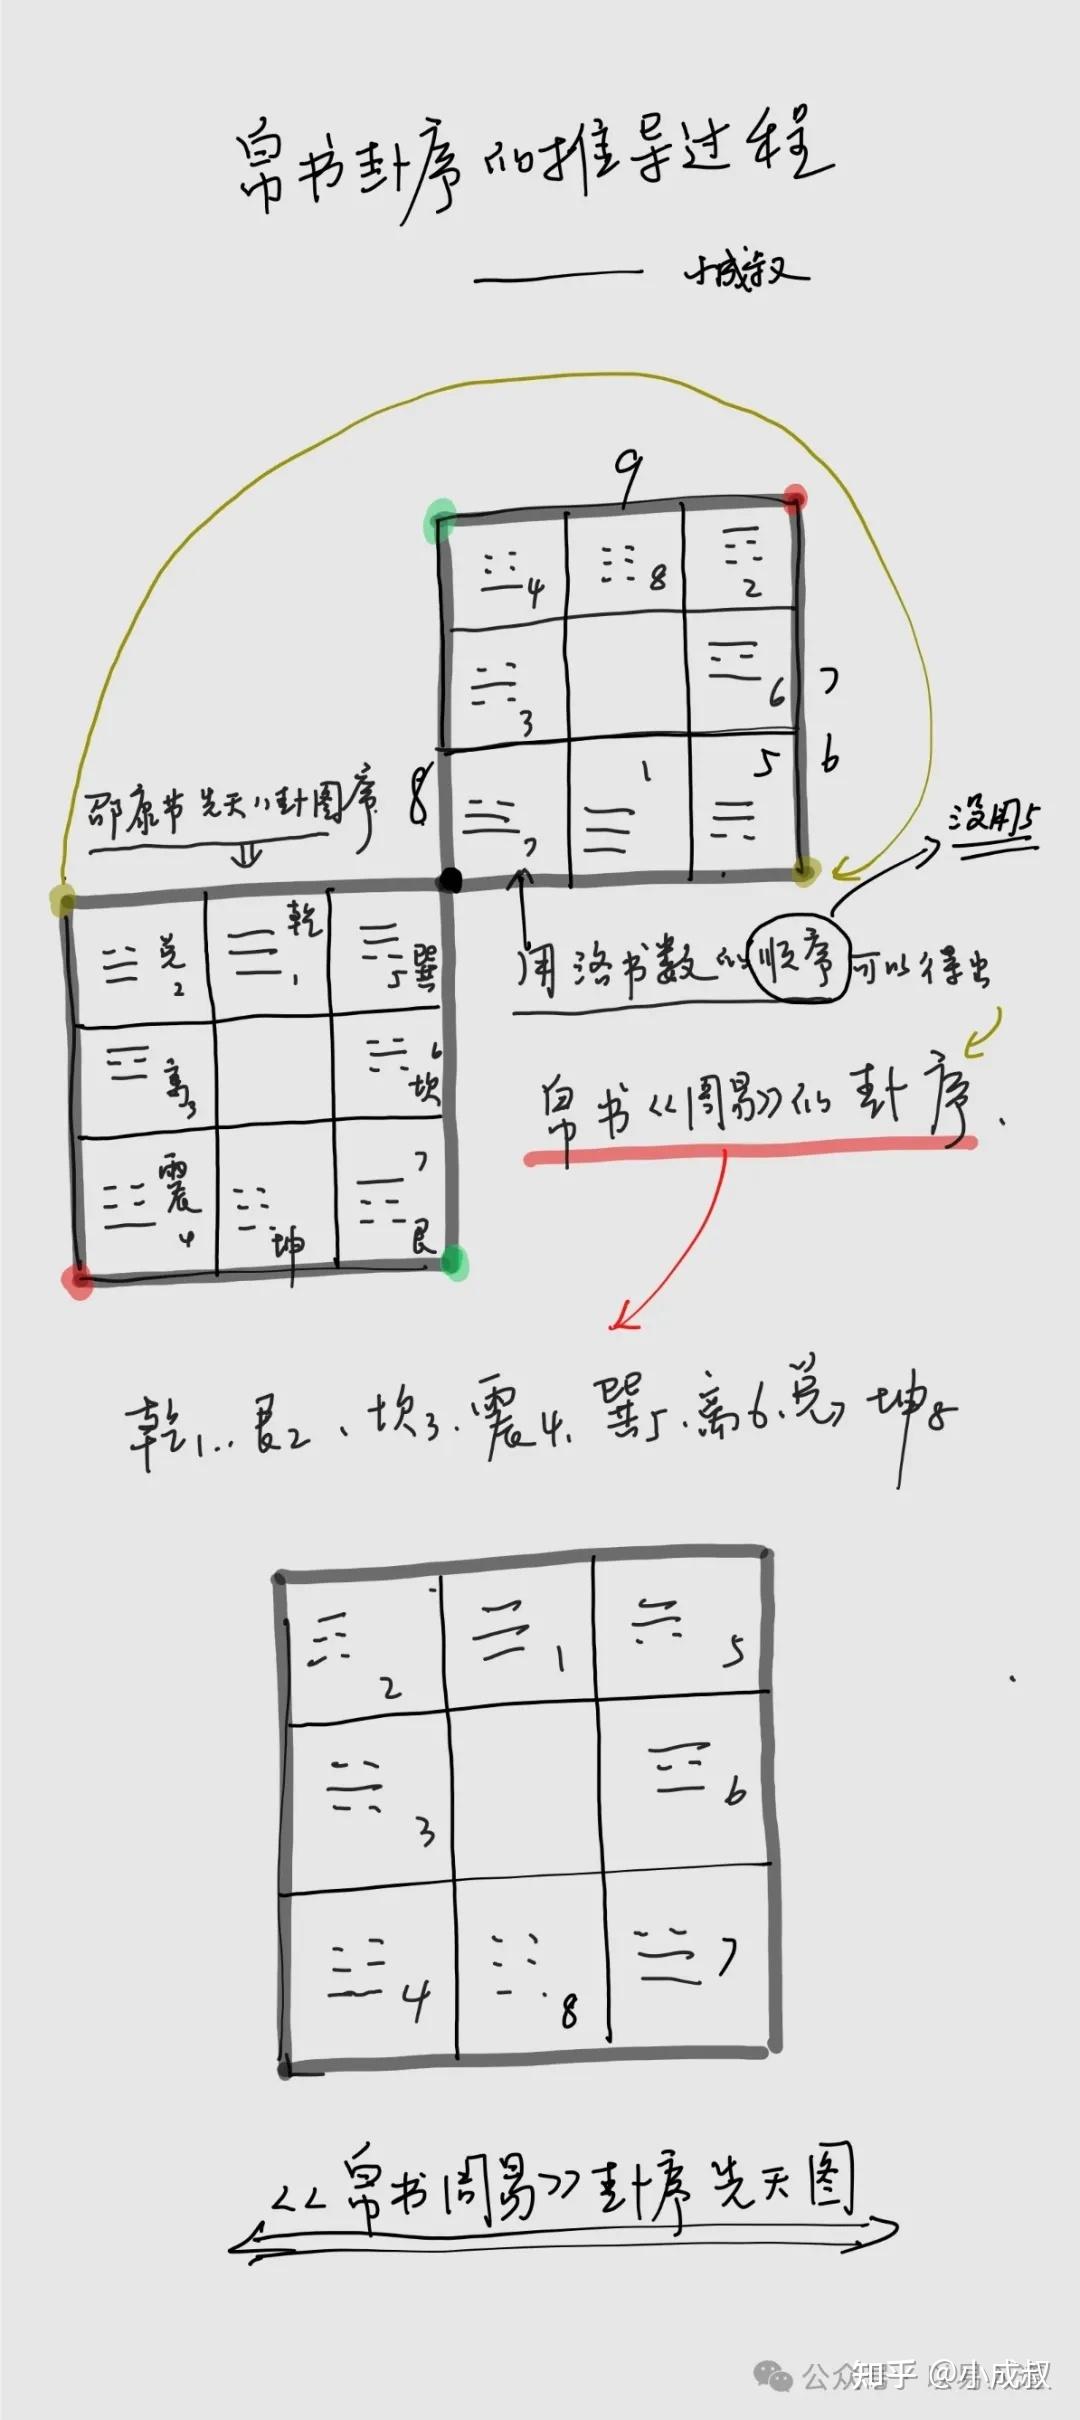 帛书卦序的推导过程
—— 小成叔
9
4 8 2
3 6 7
8 7 1 5 6
邵康节先天八卦图序
没用5
兑2 乾1 5巽
离3 6坎
震4 坤 7艮
用洛书数的顺序可以得出
帛书《周易》的卦序.
乾1..艮2、坎3.震4、巽5.离6.兑7 坤8
2 1 5
3 6
4 8 7
《帛书周易》卦序先天图
知乎 @小成叔